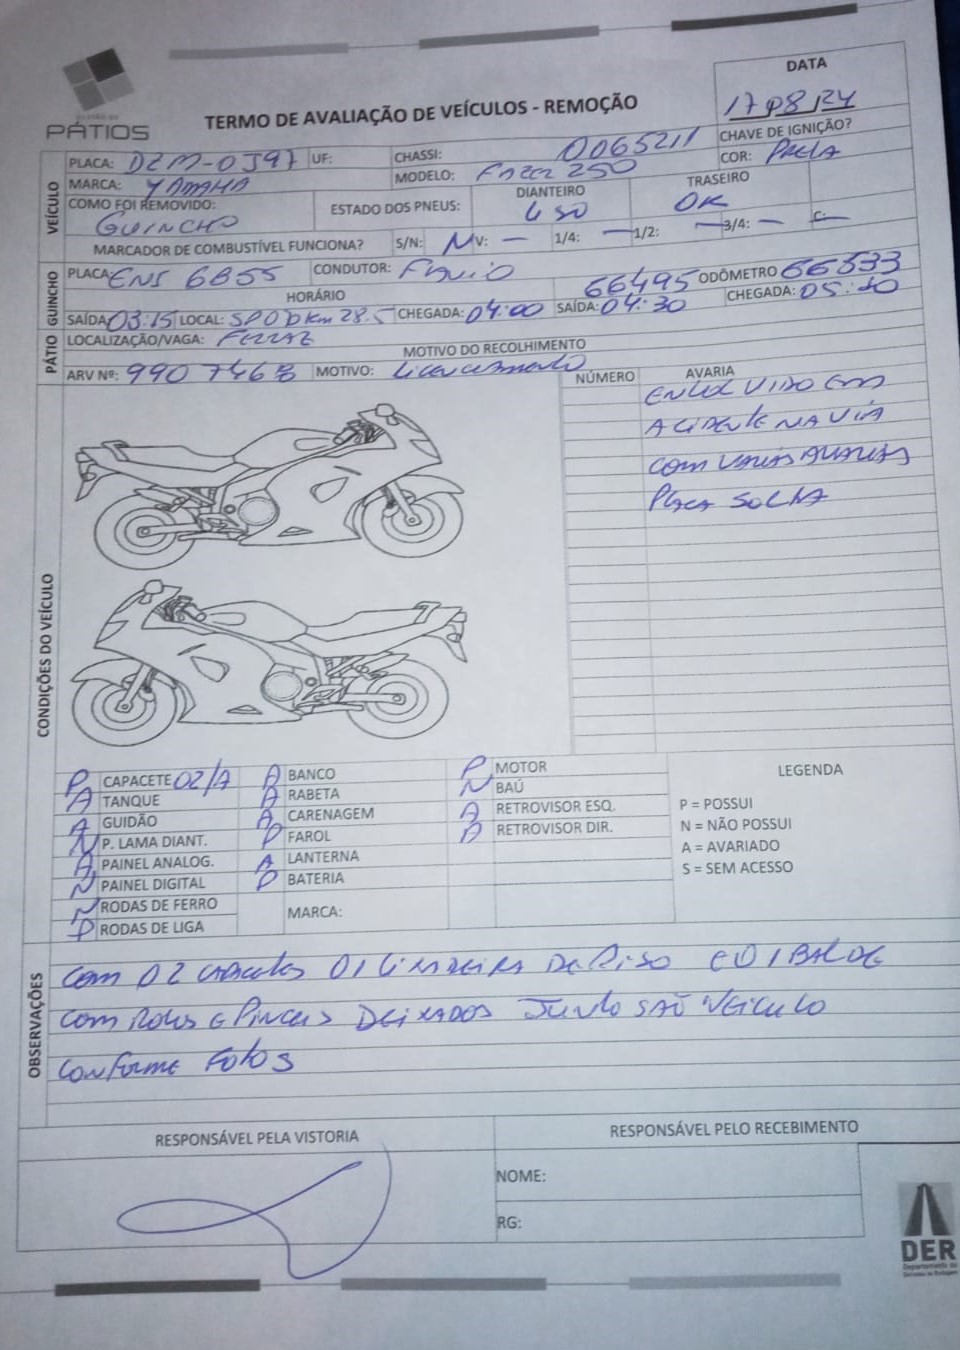 DATA
17 08 24
GESTÃO DE
PÁTIOS
TERMO DE AVALIAÇÃO DE VEÍCULOS - REMOÇÃO
CHAVE DE IGNIÇÃO?
VEÍCULO
PLACA: UF: CHASSI: 0065211
MARCA: YAMAHA MODELO: FAZER 250 COR: PRETA
COMO FOI REMOVIDO: GUINCHO ESTADO DOS PNEUS: DIANTEIRO TRASEIRO OK
MARCADOR DE COMBUSTÍVEL FUNCIONA? S/N: N V: — 1/4: — 1/2: — 3/4: — C: —
GUINCHO
PLACA: ENS 6B55 CONDUTOR: FLAVIO 66495 ODÔMETRO 66533
HORÁRIO
SAÍDA: 03:15 LOCAL: Km 28.5 CHEGADA: 04:00 SAÍDA: 04:30 CHEGADA: 05:
PÁTIO
LOCALIZAÇÃO/VAGA: FERRAZ
MOTIVO DO RECOLHIMENTO
ARV Nº: MOTIVO: Licenciamento
CONDIÇÕES DO VEÍCULO
NÚMERO AVARIA
ENVOLVIDO EM
ACIDENTE NA VIA
COM VARIAS AVARIAS
PLACA SOLTA
P CAPACETE 02/A
A TANQUE
A GUIDÃO
N P. LAMA DIANT.
A PAINEL ANALOG.
N PAINEL DIGITAL
N RODAS DE FERRO
P RODAS DE LIGA
A BANCO
A RABETA
A CARENAGEM
P FAROL
A LANTERNA
P BATERIA
MARCA:
P MOTOR
N BAÚ
A RETROVISOR ESQ.
A RETROVISOR DIR.
LEGENDA
P = POSSUI
N = NÃO POSSUI
A = AVARIADO
S = SEM ACESSO
OBSERVAÇÕES
COM 02 CAPACETES 01 DE PISO E 01 BALDE
COM ROLOS E PINCEIS DEIXADOS JUNTO VEICULO
CONFORME FOTOS
RESPONSÁVEL PELA VISTORIA
RESPONSÁVEL PELO RECEBIMENTO
NOME:
RG:
DER